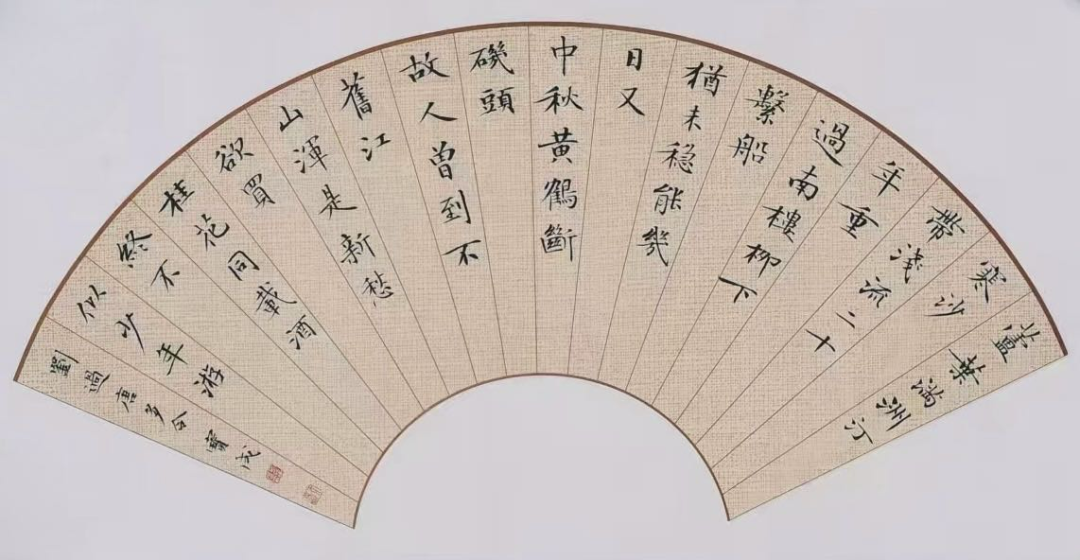 蘆葉滿洲汀
寒沙
帶淺流二十
年重
過南樓柳下
繫船
猶未稳能幾
日又
中秋黄鶴斷
磯頭
故人曾到不
舊江
山渾是新愁
欲買
桂花同載酒
終不
似少年游
劉過唐多令 寶成